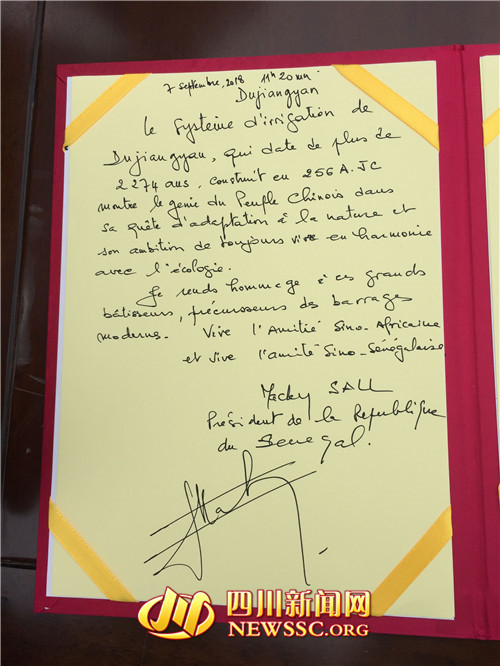 7 septembre, 2018 11h20mn
Dujiangyan
Le Système d'irrigation de
Dujiangyan, qui date de plus de
2274 ans, construit en 256 A.JC
montre le génie du Peuple Chinois dans
sa quête d'adaptation à la nature et
son ambition de toujours vivre en harmonie
avec l'écologie.
Je rends hommage à ces grands
bâtisseurs, précurseurs des barrages
modernes. Vive l'Amitié Sino-Africaine
et vive l'amitié Sino-Sénégalaise
Macky SALL
Président de la République
du Senegal.
四川新闻网
NEWSSC.ORG